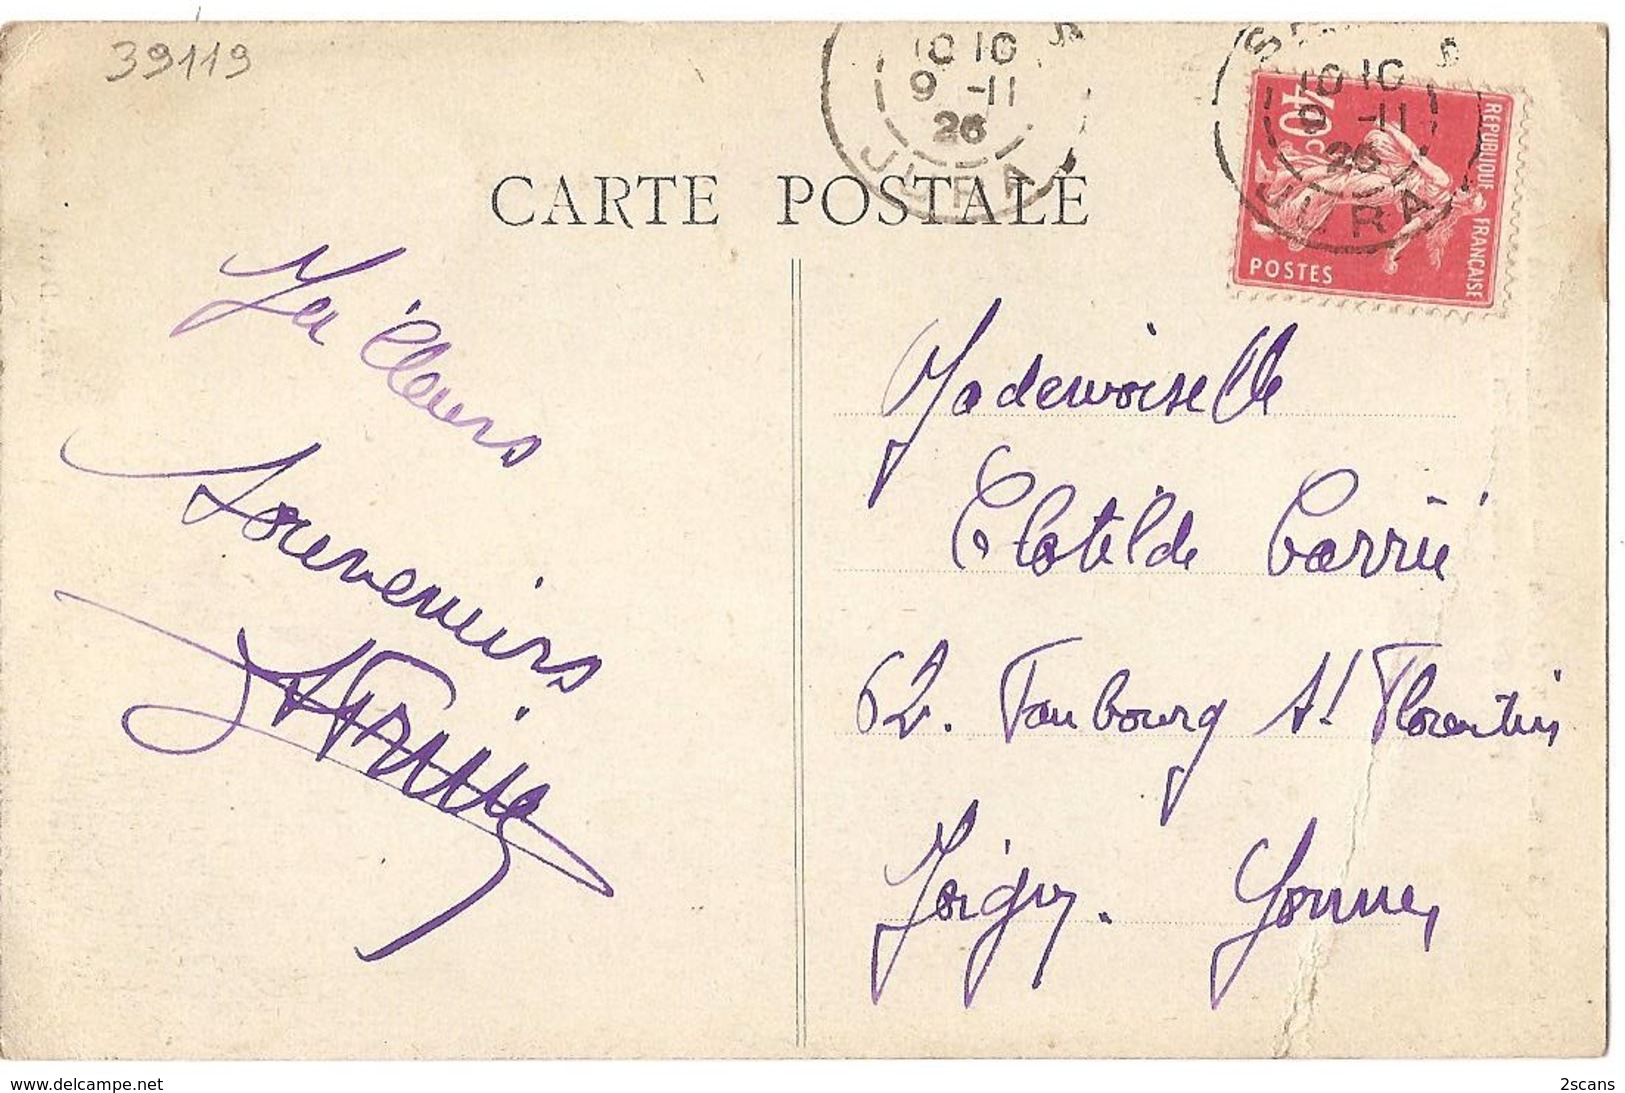 39119
10 10
9 -11
26
JURA
10 10
9 -11
26
JURA
40c
REPUBLIQUE FRANCAISE
POSTES
CARTE POSTALE
Meilleurs
Souvenirs
Mademoiselle
Clotilde Carrié
62. Faubourg St Florentin
Joigny. Yonne,
www.delcampe.net
2scans